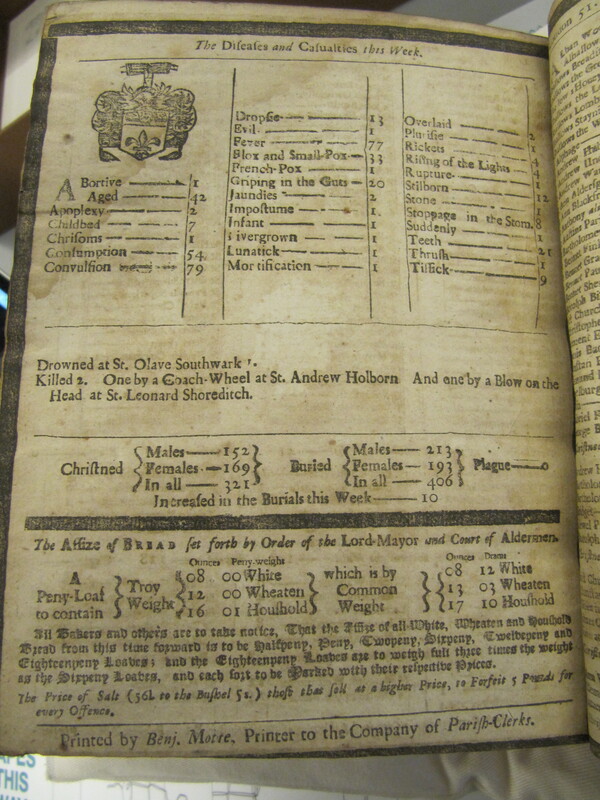 The Diseases and Casualties this Week.
Abortive 1
Aged 42
Apoplexy 2
Childbed 7
Chrisoms 1
Consumption 54
Convulsion 79
Dropsie 13
Evil 1
Fever 77
Flox and Small-Pox 33
French-Pox 1
Griping in the Guts 20
Jaundies 2
Impostume 1
Infant 1
Livergrown 1
Lunatick 1
Mortification 1
Overlaid
Plurisie
Rickets
Rising of the Lights
Rupture
Stilborn
Stone
Stoppage in the Stom.
Suddenly
Teeth
Thrush
Tissick
Drowned at St. Olave Southwark 1.
Killed 2. One by a Coach-Wheel at St. Andrew Holborn And one by a Blow on the
Head at St. Leonard Shoreditch.
Christned { Males — 152 Females — 169 In all — 321 } Buried { Males — 213 Females — 193 In all — 406 } Plague — 0
Increased in the Burials this Week — 10
The Assize of BREAD set forth by Order of the Lord-Mayor and Court of Aldermen.
Ounces Peny-weights Ounces Drams
A 08 00 White which is by 08 12 White
Peny-Loaf Troy 12 00 Wheaten Common 13 03 Wheaten
to contain Weight 16 01 Houshold Weight 17 10 Houshold
All Bakers and others are to take notice, That the Assize of all White, Wheaten and Houshold
Bread from this time forward is to be Halfpeny, Peny, Twopeny, Sixpeny, Twelvepeny and
Eighteenpeny Loaves: and the Eighteenpeny Loaves are to weigh full three times the weight
as the Sixpeny Loaves, and each sort to be Marked with their respective Prices.
The Price of Salt (56l. to the Bushel 5s.) those that sell at a higher Price, to Forfeit 5 Pounds for
every Offence.
Printed by Benj. Motte, Printer to the Company of Parish-Clerks.